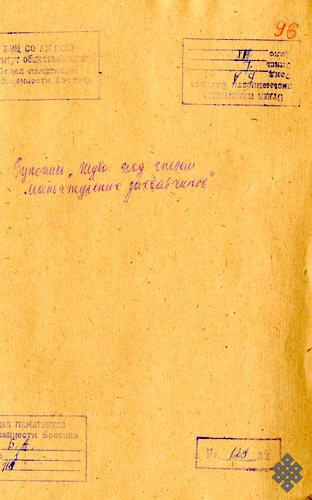 96
БНЦ СО АН СССР
тут обществен
Отдел памятников
сьменности Востока
Отдел памятн
письменности Востока
Фонд
Опись 1
Дело III
Рукопись „Тува под гнетом
маньчжурских захватчиков"
дел памятников
менности Востока
Б. Д.
No 129